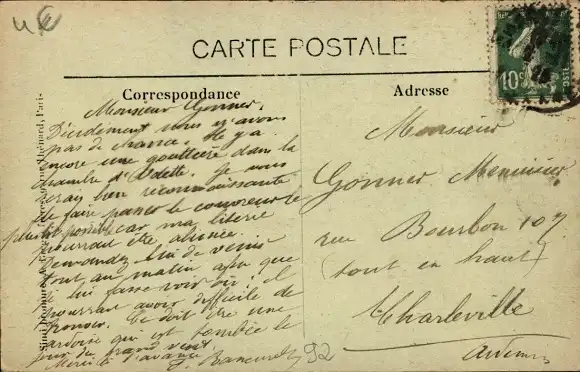 CARTE POSTALE
Correspondance
Adresse
10c
Monsieur Gonner,
Décidément nous n'avons
pas de chance. Il y a
encore une gouttière dans la
chambre d'Odette. Je vous
serai bien reconnaissante
de faire passer le couvreur le
plus tôt possible car ma literie
pourrait être abîmée.
Demandez lui de venir
tout au matin afin que
je lui fasse voir où. Il
pourrait avoir difficile de
trouver. Ce doit être une
ardoise qui est tombée le
jour du grand vent.
Merci d'avance
92
Monsieur
Gonner Menuisier
rue Bourbon 107
(tout en haut)
Charleville